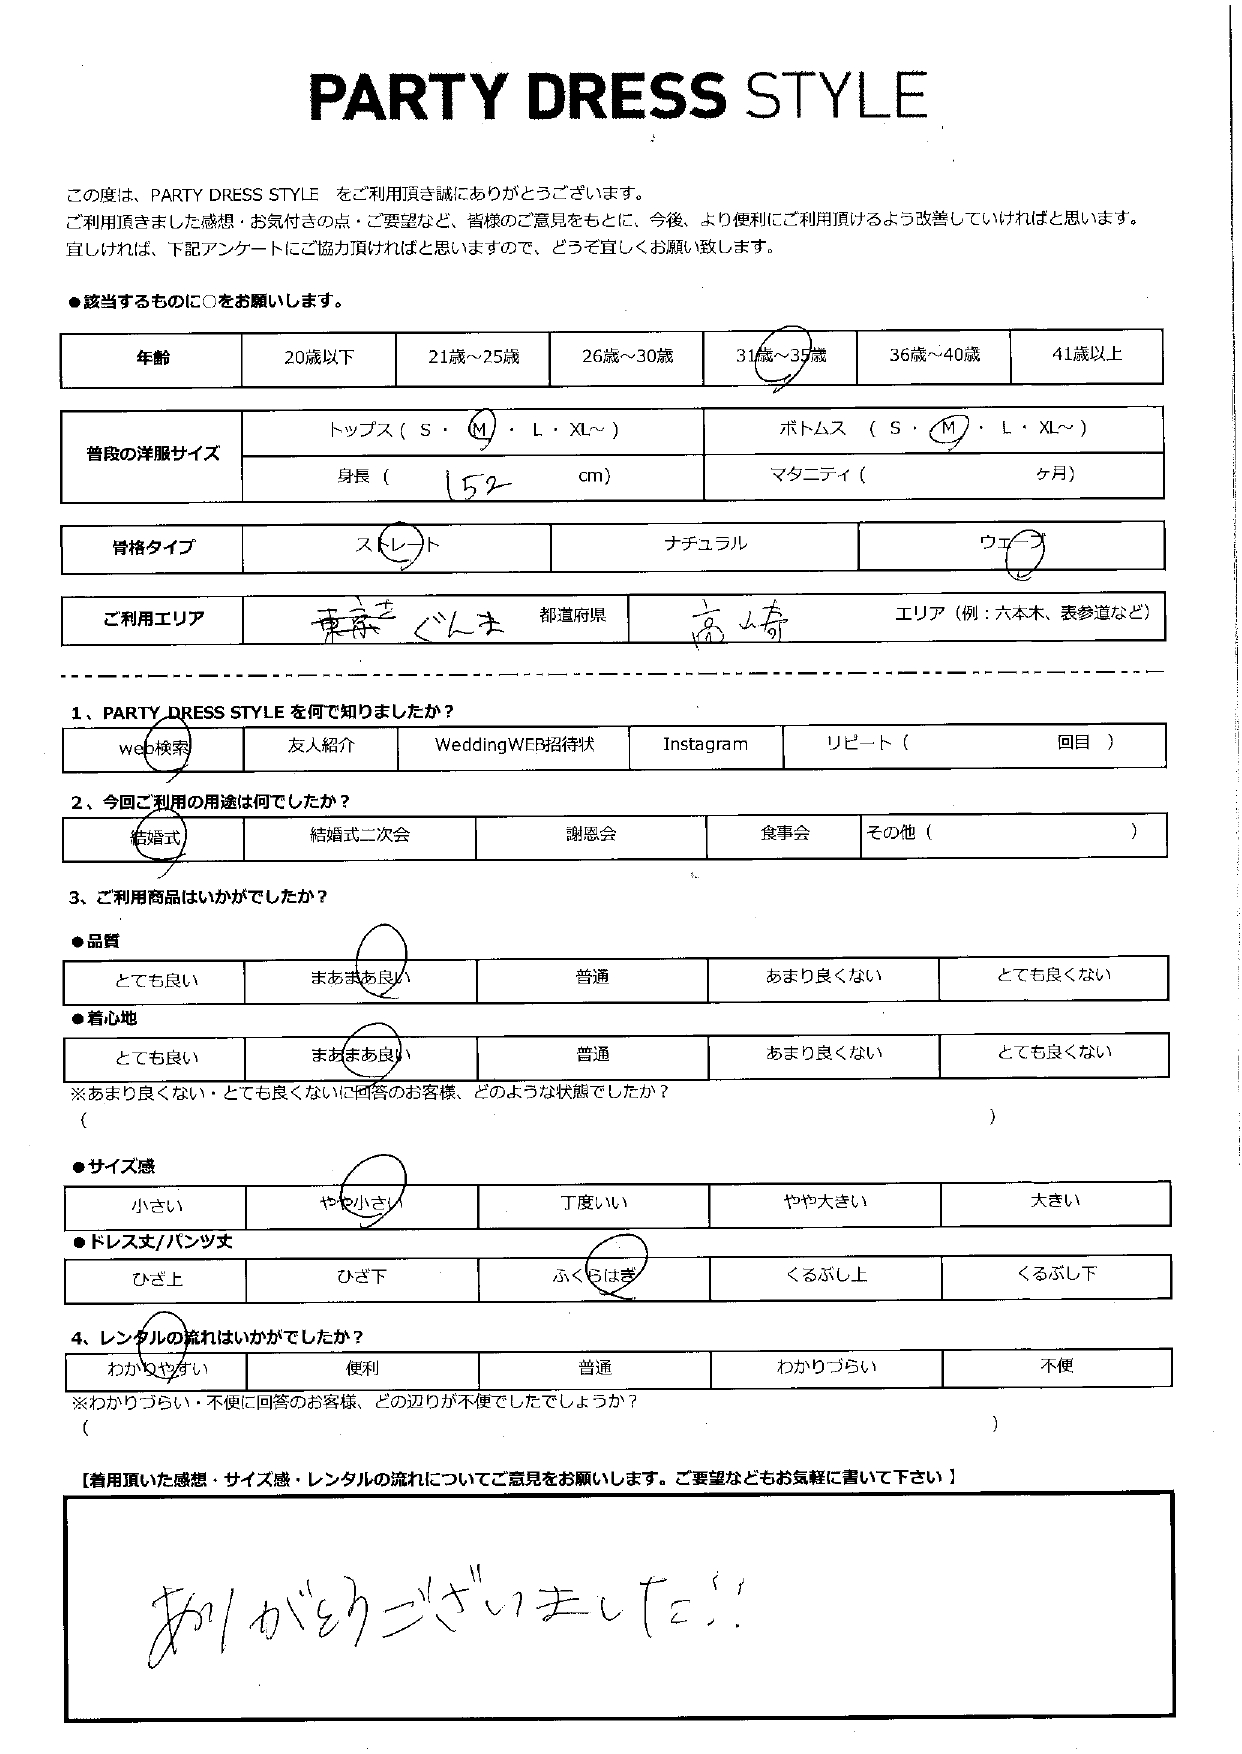 PARTY DRESS STYLE
この度は、PARTY DRESS STYLE をご利用頂き誠にありがとうございます。
ご利用頂きました感想・お気付きの点・ご要望など、皆様のご意見をもとに、今後、より便利にご利用頂けるよう改善していければと思います。
宜しければ、下記アンケートにご協力頂ければと思いますので、どうぞ宜しくお願い致します。
●該当するものに○をお願いします。
年齢 20歳以下 21歳～25歳 26歳～30歳 31歳～35歳 36歳～40歳 41歳以上
普段の洋服サイズ トップス ( S ・ M ・ L ・ XL～ ) ボトムス ( S ・ M ・ L ・ XL～ )
身長 ( 152 cm) マタニティ ( ヶ月)
骨格タイプ ストレート ナチュラル ウェーブ
ご利用エリア 東京 ぐんま 都道府県 高崎 エリア（例：六本木、表参道など）
1、PARTY DRESS STYLE を何で知りましたか？
web検索 友人紹介 WeddingWEB招待状 Instagram リピート ( 回目 )
2、今回ご利用の用途は何でしたか？
結婚式 結婚式二次会 謝恩会 食事会 その他 ( )
3、ご利用商品はいかがでしたか？
●品質
とても良い まあまあ良い 普通 あまり良くない とても良くない
●着心地
とても良い まあまあ良い 普通 あまり良くない とても良くない
※あまり良くない・とても良くないに回答のお客様、どのような状態でしたか？
( )
●サイズ感
小さい やや小さい 丁度いい やや大きい 大きい
●ドレス丈/パンツ丈
ひざ上 ひざ下 ふくらはぎ くるぶし上 くるぶし下
4、レンタルの流れはいかがでしたか？
わかりやすい 便利 普通 わかりづらい 不便
※わかりづらい・不便に回答のお客様、どの辺りが不便でしたでしょうか？
( )
【着用頂いた感想・サイズ感・レンタルの流れについてご意見をお願いします。ご要望などもお気軽に書いて下さい 】
ありがとうございました!!